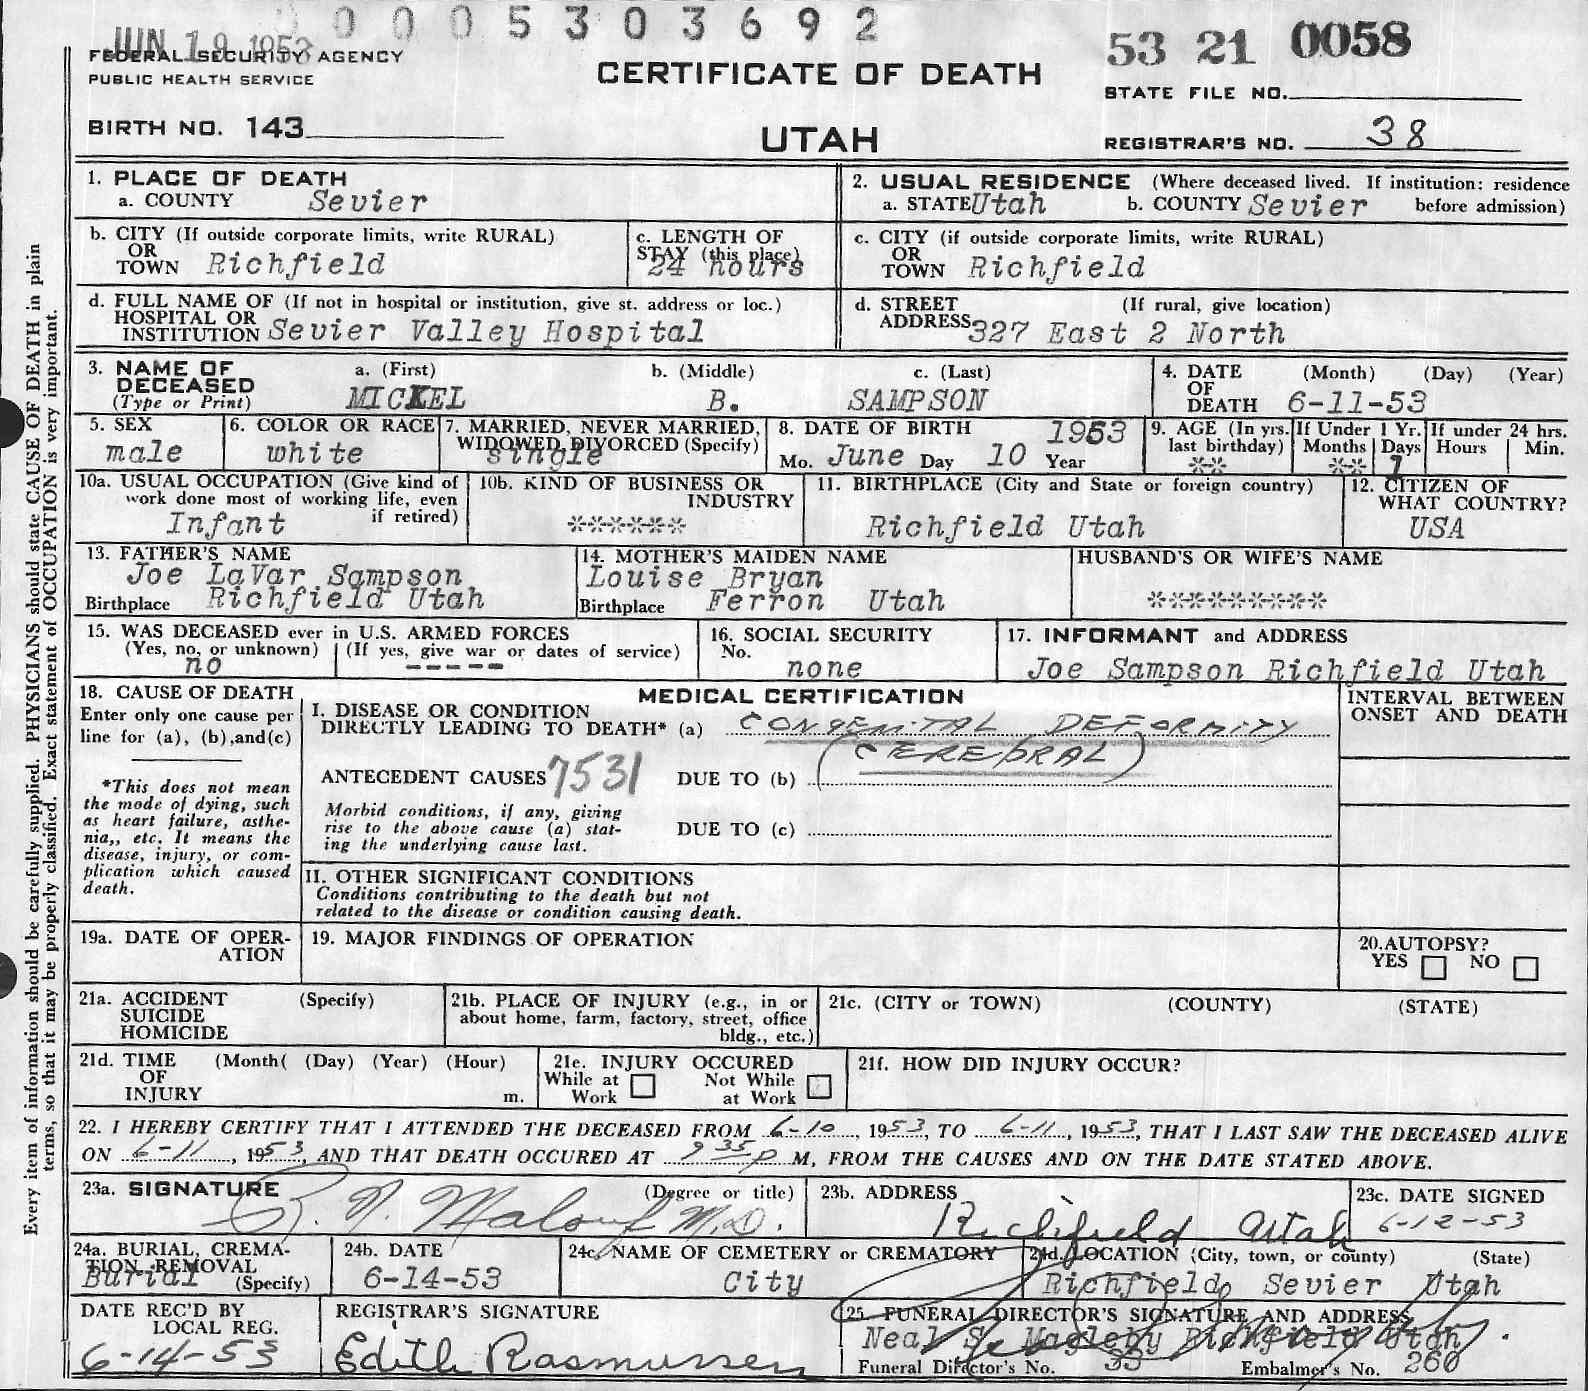 0005303692
JUN 19 1953
53 21 0058
FEDERAL SECURITY AGENCY
PUBLIC HEALTH SERVICE
CERTIFICATE OF DEATH
STATE FILE NO.
BIRTH NO. 143
UTAH
REGISTRAR'S NO. 38
1. PLACE OF DEATH
a. COUNTY Sevier
2. USUAL RESIDENCE (Where deceased lived. If institution: residence before admission)
a. STATE Utah b. COUNTY Sevier
b. CITY (If outside corporate limits, write RURAL)
OR
TOWN Richfield
c. LENGTH OF
STAY (this place)
24 hours
c. CITY (if outside corporate limits, write RURAL)
OR
TOWN Richfield
d. FULL NAME OF (If not in hospital or institution, give st. address or loc.)
HOSPITAL OR
INSTITUTION Sevier Valley Hospital
d. STREET (If rural, give location)
ADDRESS 327 East 2 North
3. NAME OF
DECEASED
(Type or Print)
a. (First) b. (Middle) c. (Last)
MICKEL B. SAMPSON
4. DATE (Month) (Day) (Year)
OF
DEATH 6-11-53
5. SEX
male
6. COLOR OR RACE
white
7. MARRIED, NEVER MARRIED,
WIDOWED, DIVORCED (Specify)
single
8. DATE OF BIRTH 1953
Mo. June Day 10 Year
9. AGE (In yrs.
last birthday)
**
If Under 1 Yr.
Months Days
** 1
If under 24 hrs.
Hours Min.
10a. USUAL OCCUPATION (Give kind of
work done most of working life, even
if retired)
Infant
10b. KIND OF BUSINESS OR
INDUSTRY
******
11. BIRTHPLACE (City and State or foreign country)
Richfield Utah
12. CITIZEN OF
WHAT COUNTRY?
USA
13. FATHER'S NAME
Joe LaVar Sampson
Birthplace Richfield Utah
14. MOTHER'S MAIDEN NAME
Louise Bryan
Birthplace Ferron Utah
HUSBAND'S OR WIFE'S NAME
*********
15. WAS DECEASED ever in U.S. ARMED FORCES
(Yes, no, or unknown) (If yes, give war or dates of service)
no -----
16. SOCIAL SECURITY
No.
none
17. INFORMANT and ADDRESS
Joe Sampson Richfield Utah
18. CAUSE OF DEATH
Enter only one cause per
line for (a), (b),and(c)
*This does not mean
the mode of dying, such
as heart failure, asthe-
nia,, etc. It means the
disease, injury, or com-
plication which caused
death.
MEDICAL CERTIFICATION
I. DISEASE OR CONDITION
DIRECTLY LEADING TO DEATH* (a) CONGENITAL DEFORMITY
(CEREBRAL)
ANTECEDENT CAUSES 7531 DUE TO (b)
Morbid conditions, if any, giving
rise to the above cause (a) stat-
ing the underlying cause last.
DUE TO (c)
II. OTHER SIGNIFICANT CONDITIONS
Conditions contributing to the death but not
related to the disease or condition causing death.
INTERVAL BETWEEN
ONSET AND DEATH
19a. DATE OF OPER-
ATION
19. MAJOR FINDINGS OF OPERATION
20.AUTOPSY?
YES NO
21a. ACCIDENT (Specify)
SUICIDE
HOMICIDE
21b. PLACE OF INJURY (e.g., in or
about home, farm, factory, street, office
bldg., etc.)
21c. (CITY or TOWN) (COUNTY) (STATE)
21d. TIME (Month( (Day) (Year) (Hour)
OF
INJURY m.
21e. INJURY OCCURED
While at Work Not While at Work
21f. HOW DID INJURY OCCUR?
22. I HEREBY CERTIFY THAT I ATTENDED THE DECEASED FROM 6-10, 1953, TO 6-11, 1953, THAT I LAST SAW THE DECEASED ALIVE
ON 6-11, 1953, AND THAT DEATH OCCURED AT 9 35 P M, FROM THE CAUSES AND ON THE DATE STATED ABOVE.
23a. SIGNATURE (Degree or title)
R. N. Malouf M.D.
23b. ADDRESS
Richfield Utah
23c. DATE SIGNED
6-12-53
24a. BURIAL, CREMA-
TION, REMOVAL
(Specify)
Burial
24b. DATE
6-14-53
24c. NAME OF CEMETERY or CREMATORY
City
24d. LOCATION (City, town, or county) (State)
Richfield Sevier Utah
DATE REC'D BY
LOCAL REG.
6-14-53
REGISTRAR'S SIGNATURE
Edith Rasmussen
25. FUNERAL DIRECTOR'S SIGNATURE AND ADDRESS
Neal S. Magleby Richfield Utah
Funeral Director's No. 33 Embalmer's No. 260
Every item of information should be carefully supplied. PHYSICIANS should state CAUSE OF DEATH in plain
terms, so that it may be properly classified. Exact statement of OCCUPATION is very important.